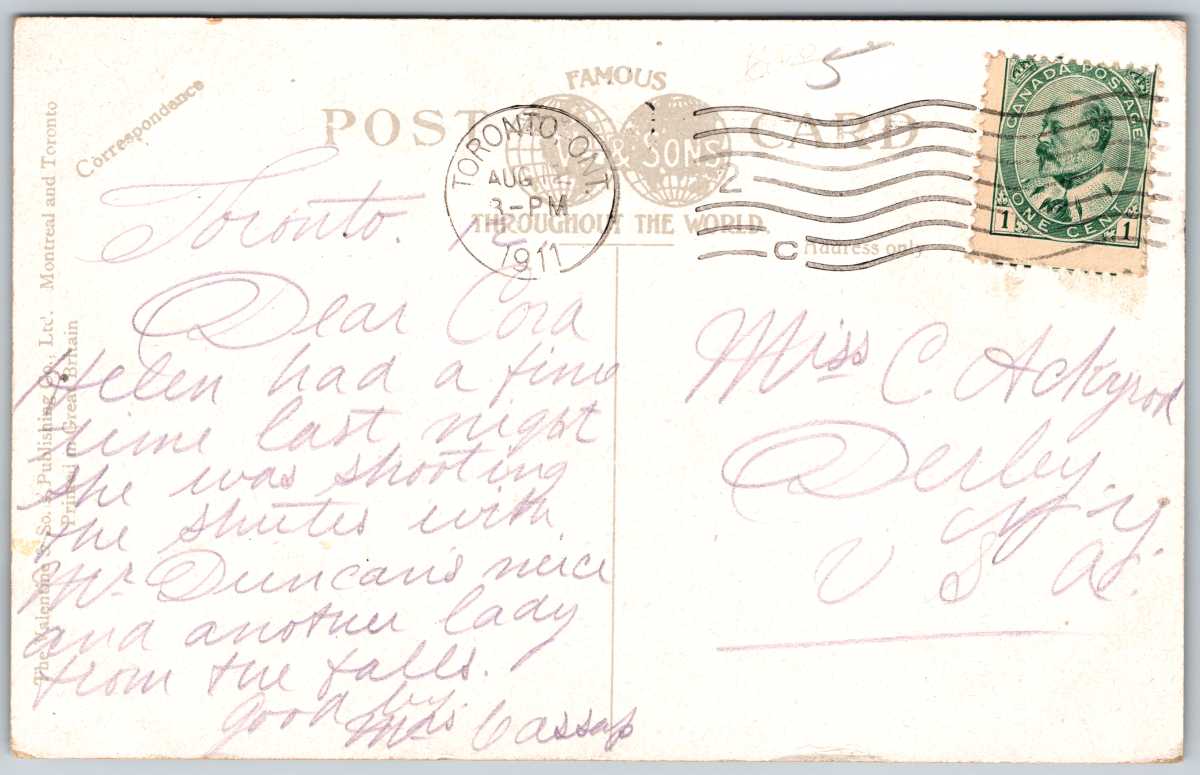 5
FAMOUS
POST CARD
V. & SONS
THROUGHOUT THE WORLD.
Correspondance
Address only
TORONTO, ONT.
AUG
3-PM
1911
2
C
CANADA POSTAGE
ONE CENT
1 1
The Valentine & Sons Publishing Co., Ltd. Montreal and Toronto
Printed in Great Britain
Toronto.
Dear Cora
Helen had a fine
time last night
she was shooting
the shutes with
Mr Duncans neice
and another lady
from the falls.
good by.
Mrs Cassap
Miss C. Ackyrod
Derby.
N.Y.
U S A.